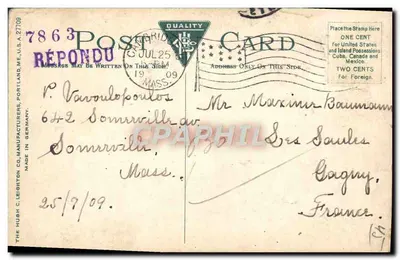 7863
RÉPONDU
POST CARD
QUALITY
JUL 25
1909
MASS.
MESSAGE MAY BE WRITTEN ON THIS SIDE
ADDRESS ONLY ON THIS SIDE.
Place the Stamp Here
ONE CENT
For United States
and Island Possessions
Cuba, Canada and
Mexico.
TWO CENTS
For Foreign.
P. Vavoulopoulos
642 Somerville av
Somerville
Mass.
25/7/09.
Mr Maxime Baumann
Les Saules
Gagny
France.
THE HUGH C. LEIGHTON CO., MANUFACTURERS, PORTLAND, ME., U.S.A.
MADE IN GERMANY.
delcampe.net